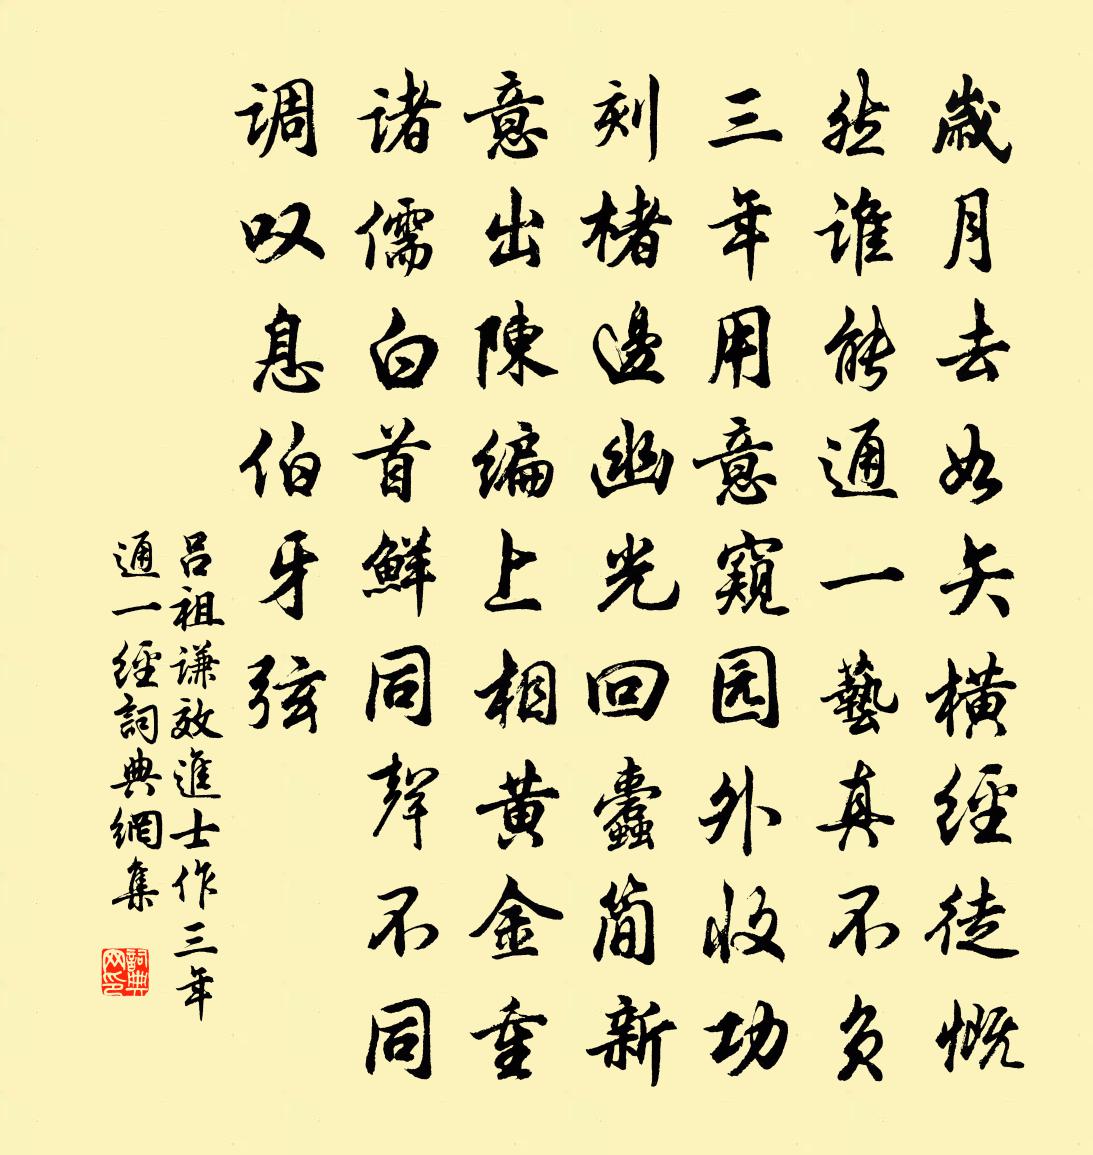 歲月去如矢橫經徒慨
然谁能通一藝真不负
三年用意窺园外收功
刻楮邊幽光回蠹简新
意出陳编上相黄金重
诸儒白首鮮同聲不同
调叹息伯牙弦
吕祖谦效進士作三年
通一經詞典網集
詞典网印